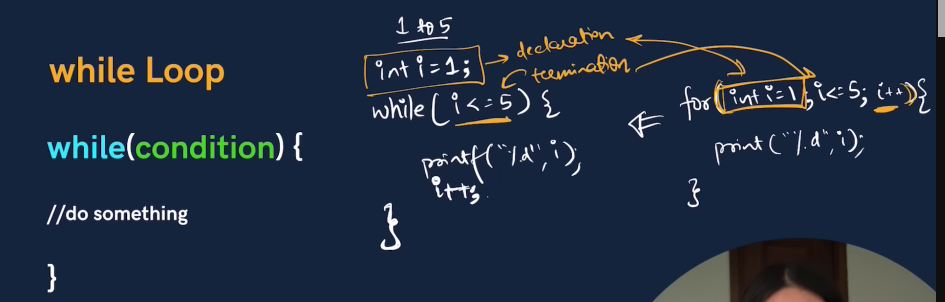 while Loop
while(condition) {
//do something
}
1 to 5
int i=1; → declaration
termination
while( i<=5) {
printf("%d", i);
i++;
}
for(int i=1; i<=5; i++){
print("%d", i);
}